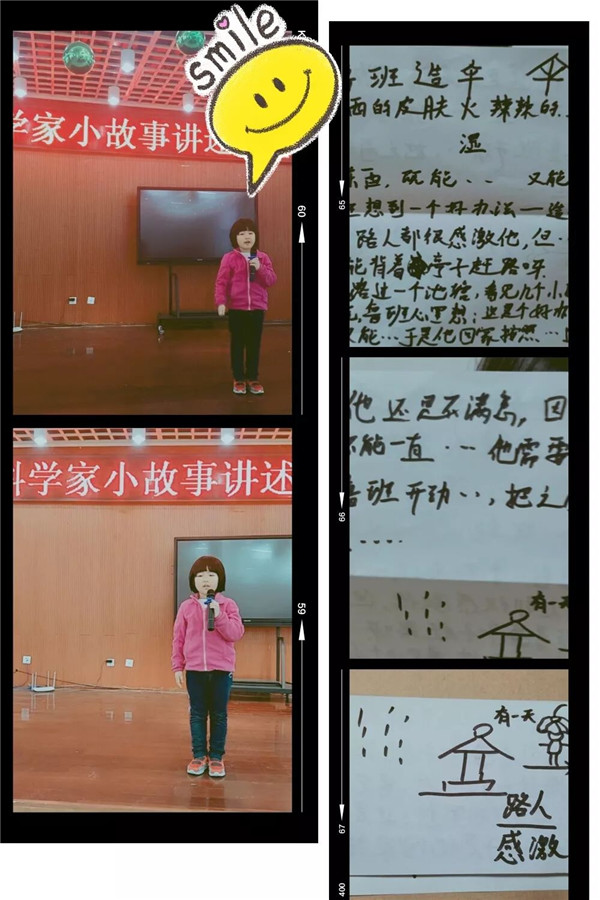 smile
学家小故事讲述
60
科学家小故事讲述
59
班造伞
晒的皮肤火辣辣的..
湿
东西,既能··· 又能
想到一个好办法一造
路人都很感激他,但·
能背着亭子赶路呀.
路过一个池塘,看见几个小
鲁班心里想:这是个好办
能···于是他回家按照···
65
他还是不满意,因
不能一直··· 他需要
鲁班开动··,把之
·····
有一天
66
有一天
路人
感激
67
400